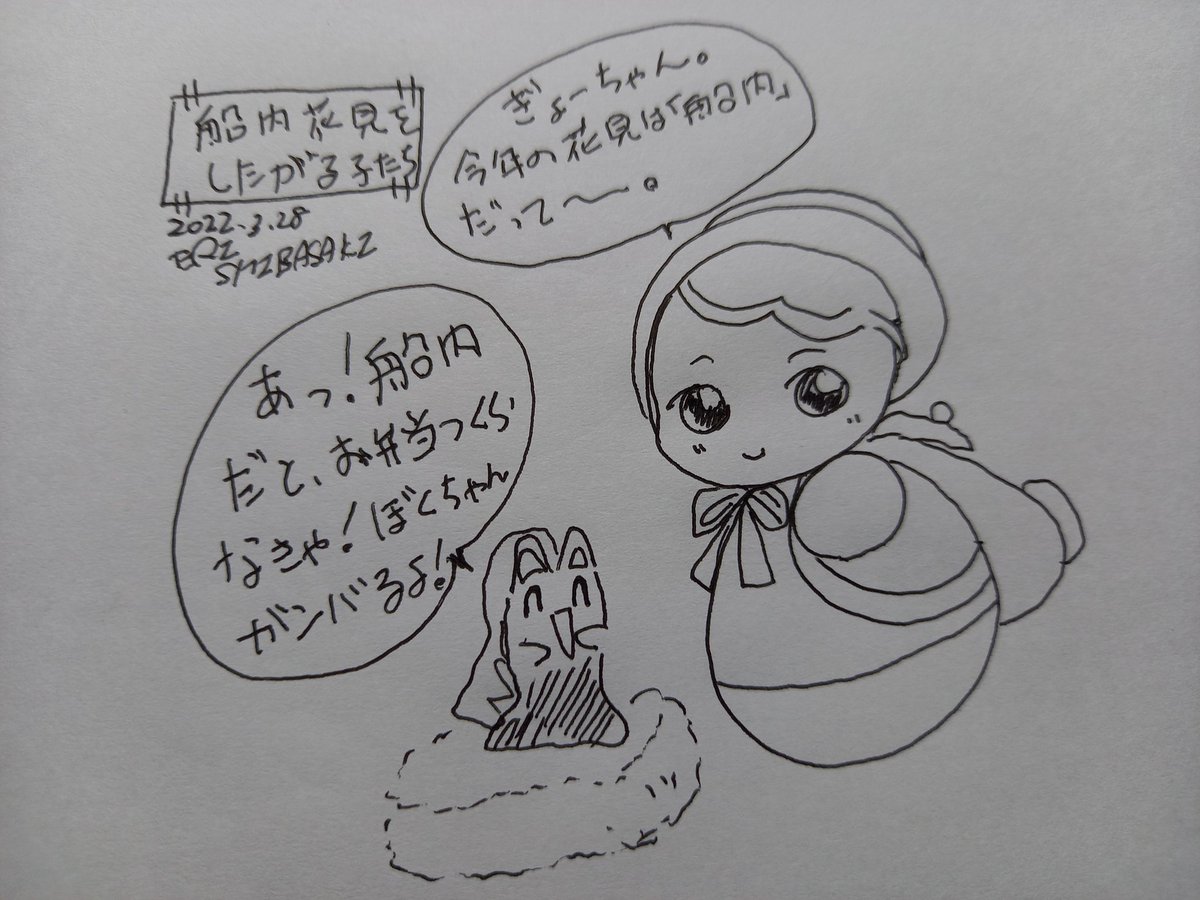 船内花見を
したがる子たち
2022.3.28
ERI
SHIBASAKI
ぎょーちゃん。
今年の花見は「船内」
だって〜。
あっ!船内
だと、お弁当つくら
なきゃ!ぼくちゃん
ガンバるよ!